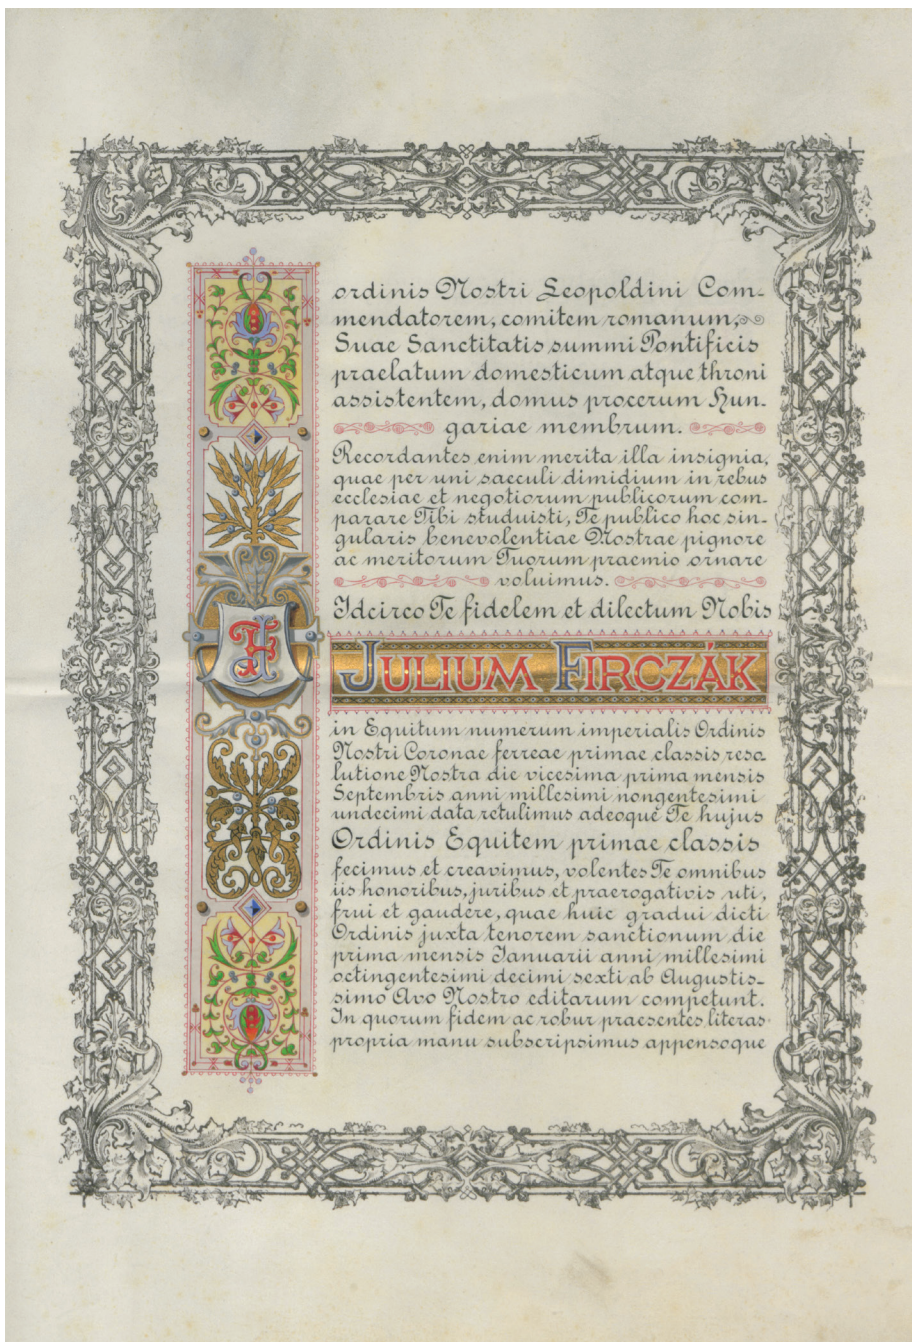 ordinis Nostri Leopoldini Com-
mendatorem, comitem romanum,
Suae Sanctitatis summi Pontificis
praelatum domesticum atque throni
assistentem, domus procerum Hun-
gariae membrum.
Recordantes enim merita illa insignia,
quae per uni saeculi dimidium in rebus
ecclesiae et negotiorum publicorum com-
parare Tibi studuisti, Te publico hoc sin-
gularis benevolentiae Nostrae pignore
ac meritorum Tuorum praemio ornare
voluimus.
Idcirco Te fidelem et dilectum Nobis
JF
JULIUM FIRCZÁK
in Equitum numerum imperialis Ordinis
Nostri Coronae ferreae primae classis reso
lutione Nostra die vicesima prima mensis
Septembris anni millesimi nongentesimi
undecimi data retulimus adeoque Te hujus
Ordinis Equitem primae classis
fecimus et creavimus, volentes Te omnibus
iis honoribus, juribus et praerogativis uti,
frui et gaudere, quae huic gradui dicti
Ordinis juxta tenorem sanctionum die
prima mensis Januarii anni millesimi
octingentesimi decimi sexti ab Augustis-
simo Avo Nostro editarum competunt.
In quorum fidem ac robur praesentes literas
propria manu subscripsimus appensoque